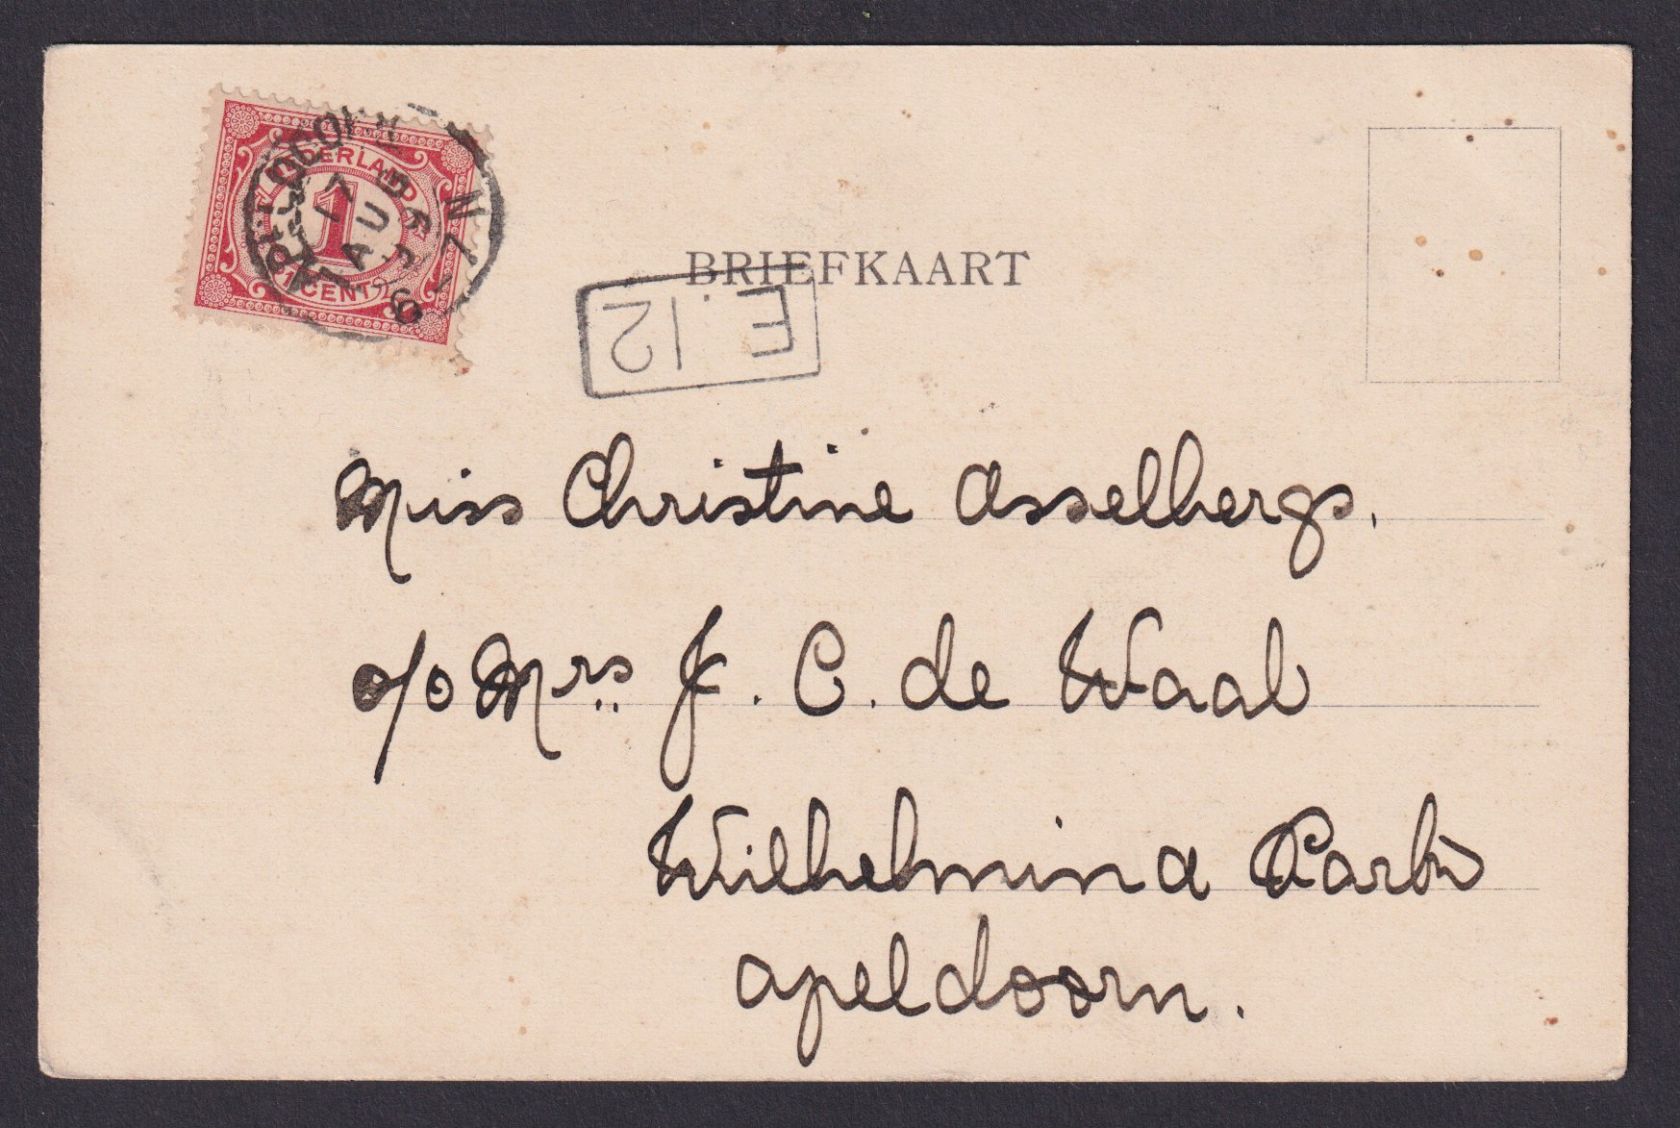 NEDERLAND
1
1 CENT
APELDOORN
17 AUG
BRIEFKAART
E.12
Miss Christine Asselbergs.
c/o Mrs. J. C. de Waal
Wilhelmina Park
Apeldoorn.